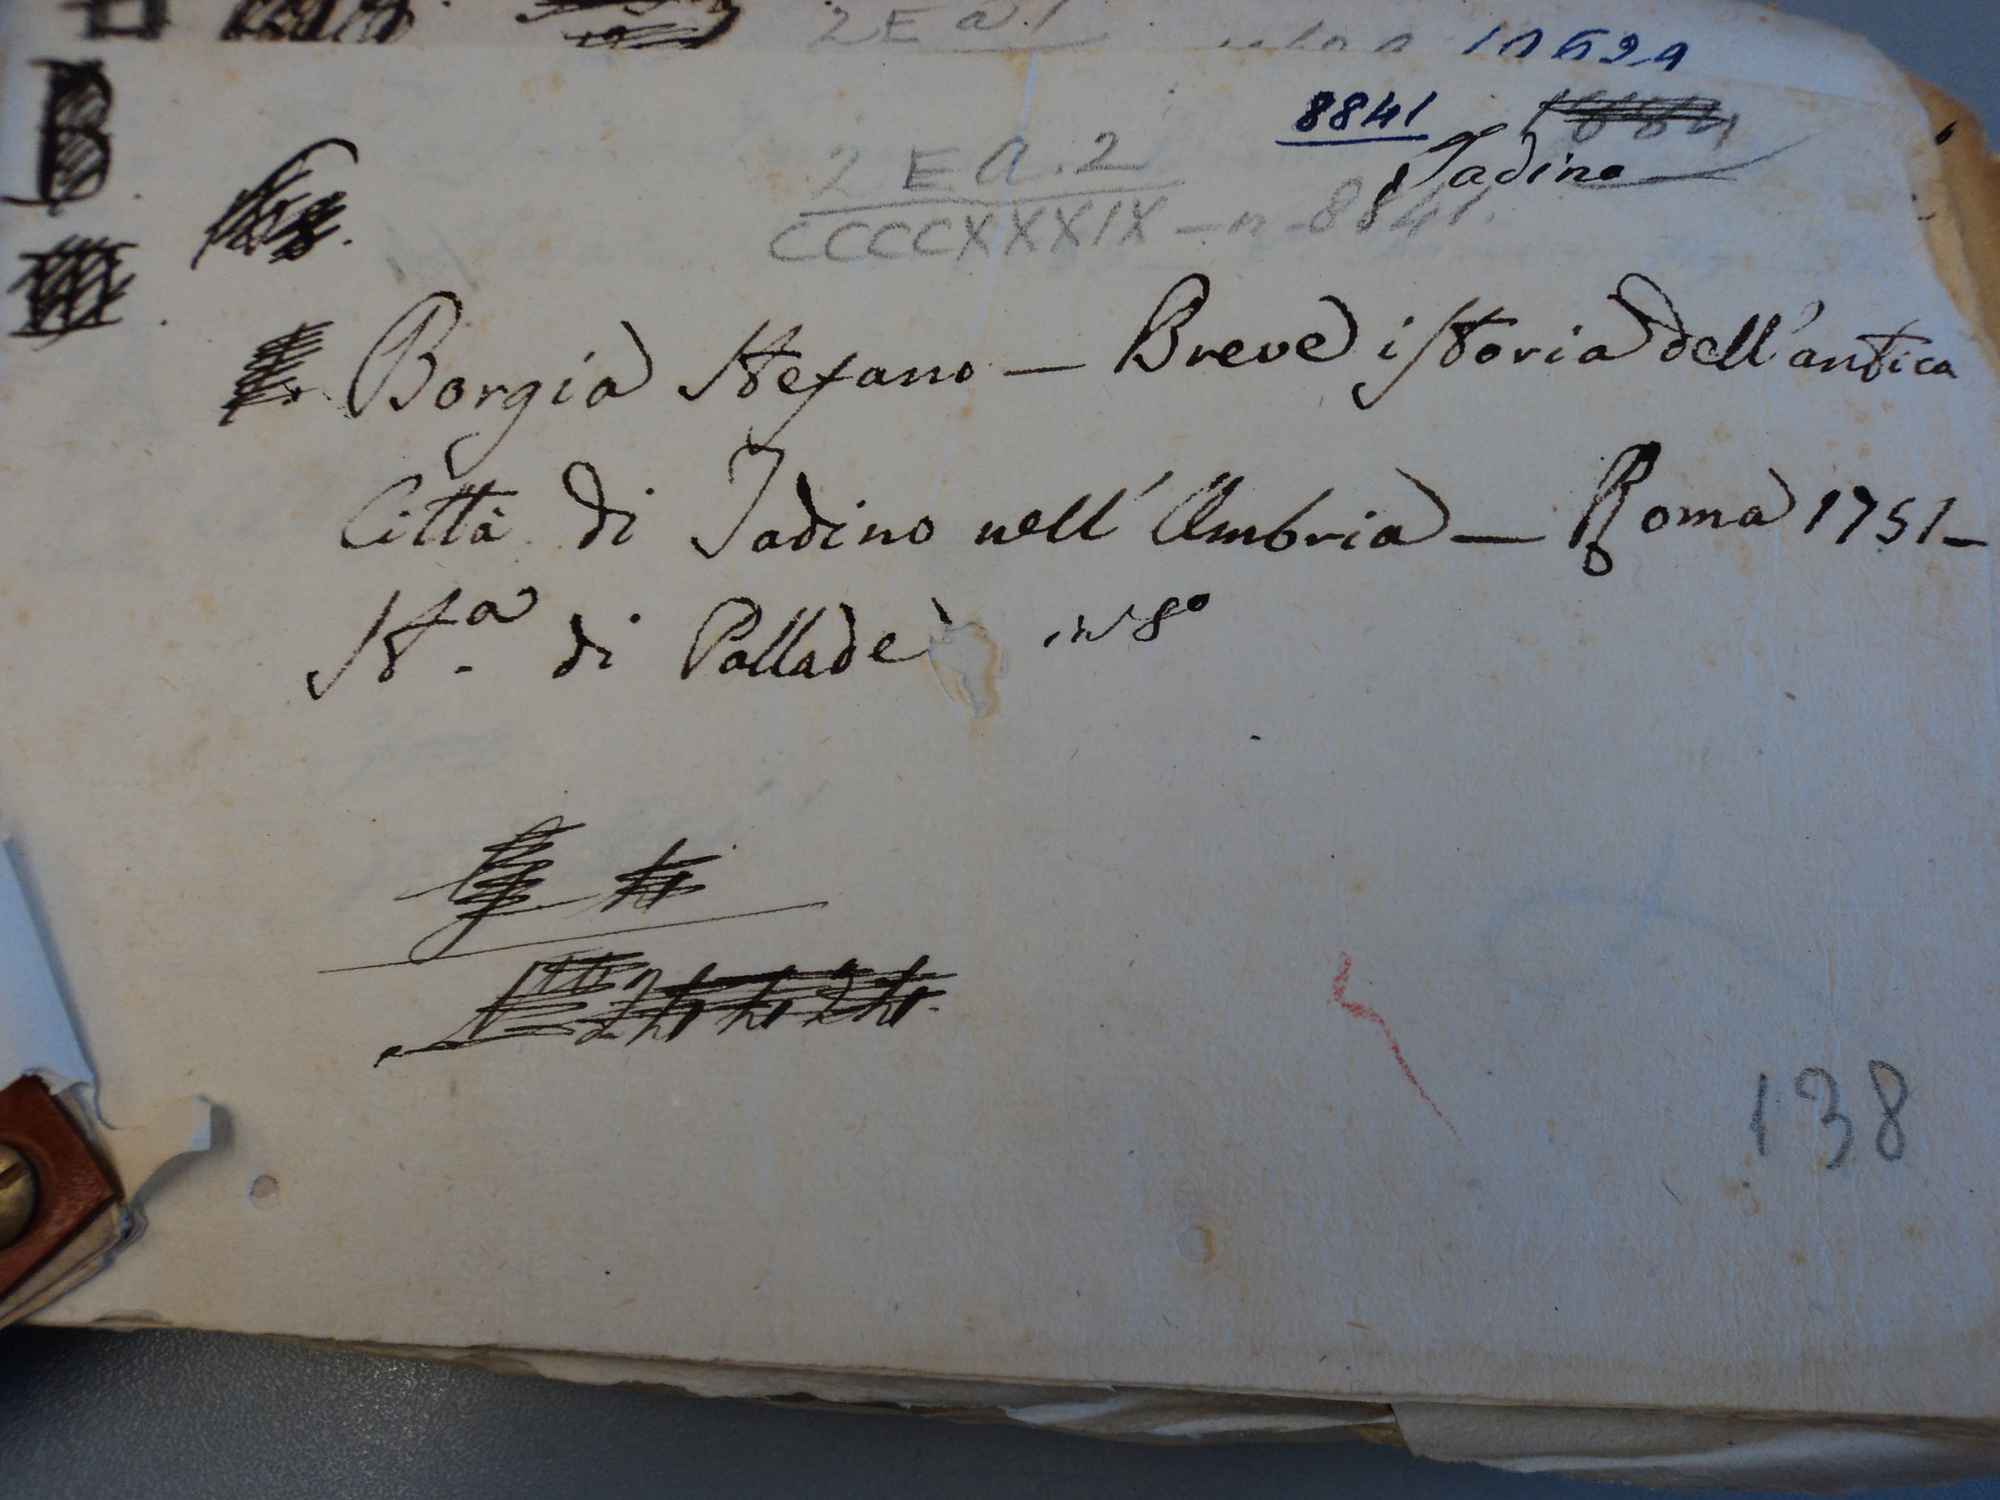 2 E a. 1
8841
Tadino
2 E a. 2
CCCCXXXIX - n - 8841.
Borgia Stefano — Breve istoria dell'antica
Città di Tadino nell'Umbria — Roma 1751 —
Sta. di Pallade in 8o
138